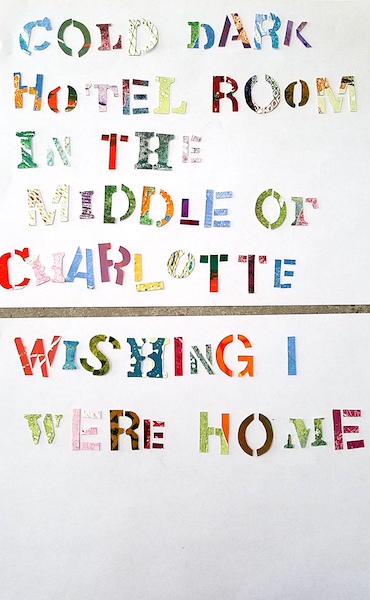 COLD DARK
HOTEL ROOM
IN THE
MIDDLE OF
CHARLOTTE
WISHING I
WERE HOME